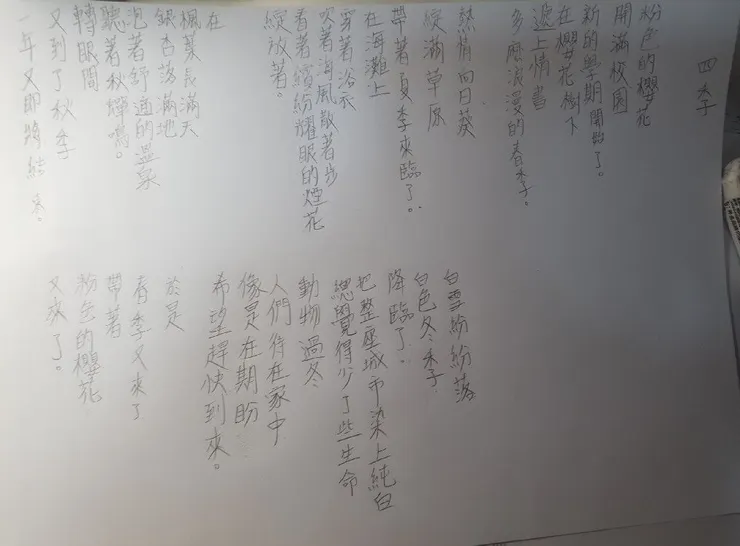 四季
粉色的櫻花
開滿校園
新的學期開始了。
在櫻花樹下
遞上情書
多麼浪漫的春季。
熱情向日葵
綻滿草原
帶著夏季來臨了。
在海灘上
穿著浴衣
吹著海風散著步
看著繽紛耀眼的煙花
綻放著。
在
楓葉長滿天
銀杏落滿地
泡著舒適的溫泉
聽著秋蟬鳴。
轉眼間
又到了秋季
一年又即將結束。
白雪紛紛落
白色冬季
降臨了。
把整座城市染上純白
總覺得少了些生命
動物過冬
人們待在家中
像是在期盼
希望趕快到來。
於是
春季又來了
帶著
粉色的櫻花
又來了。